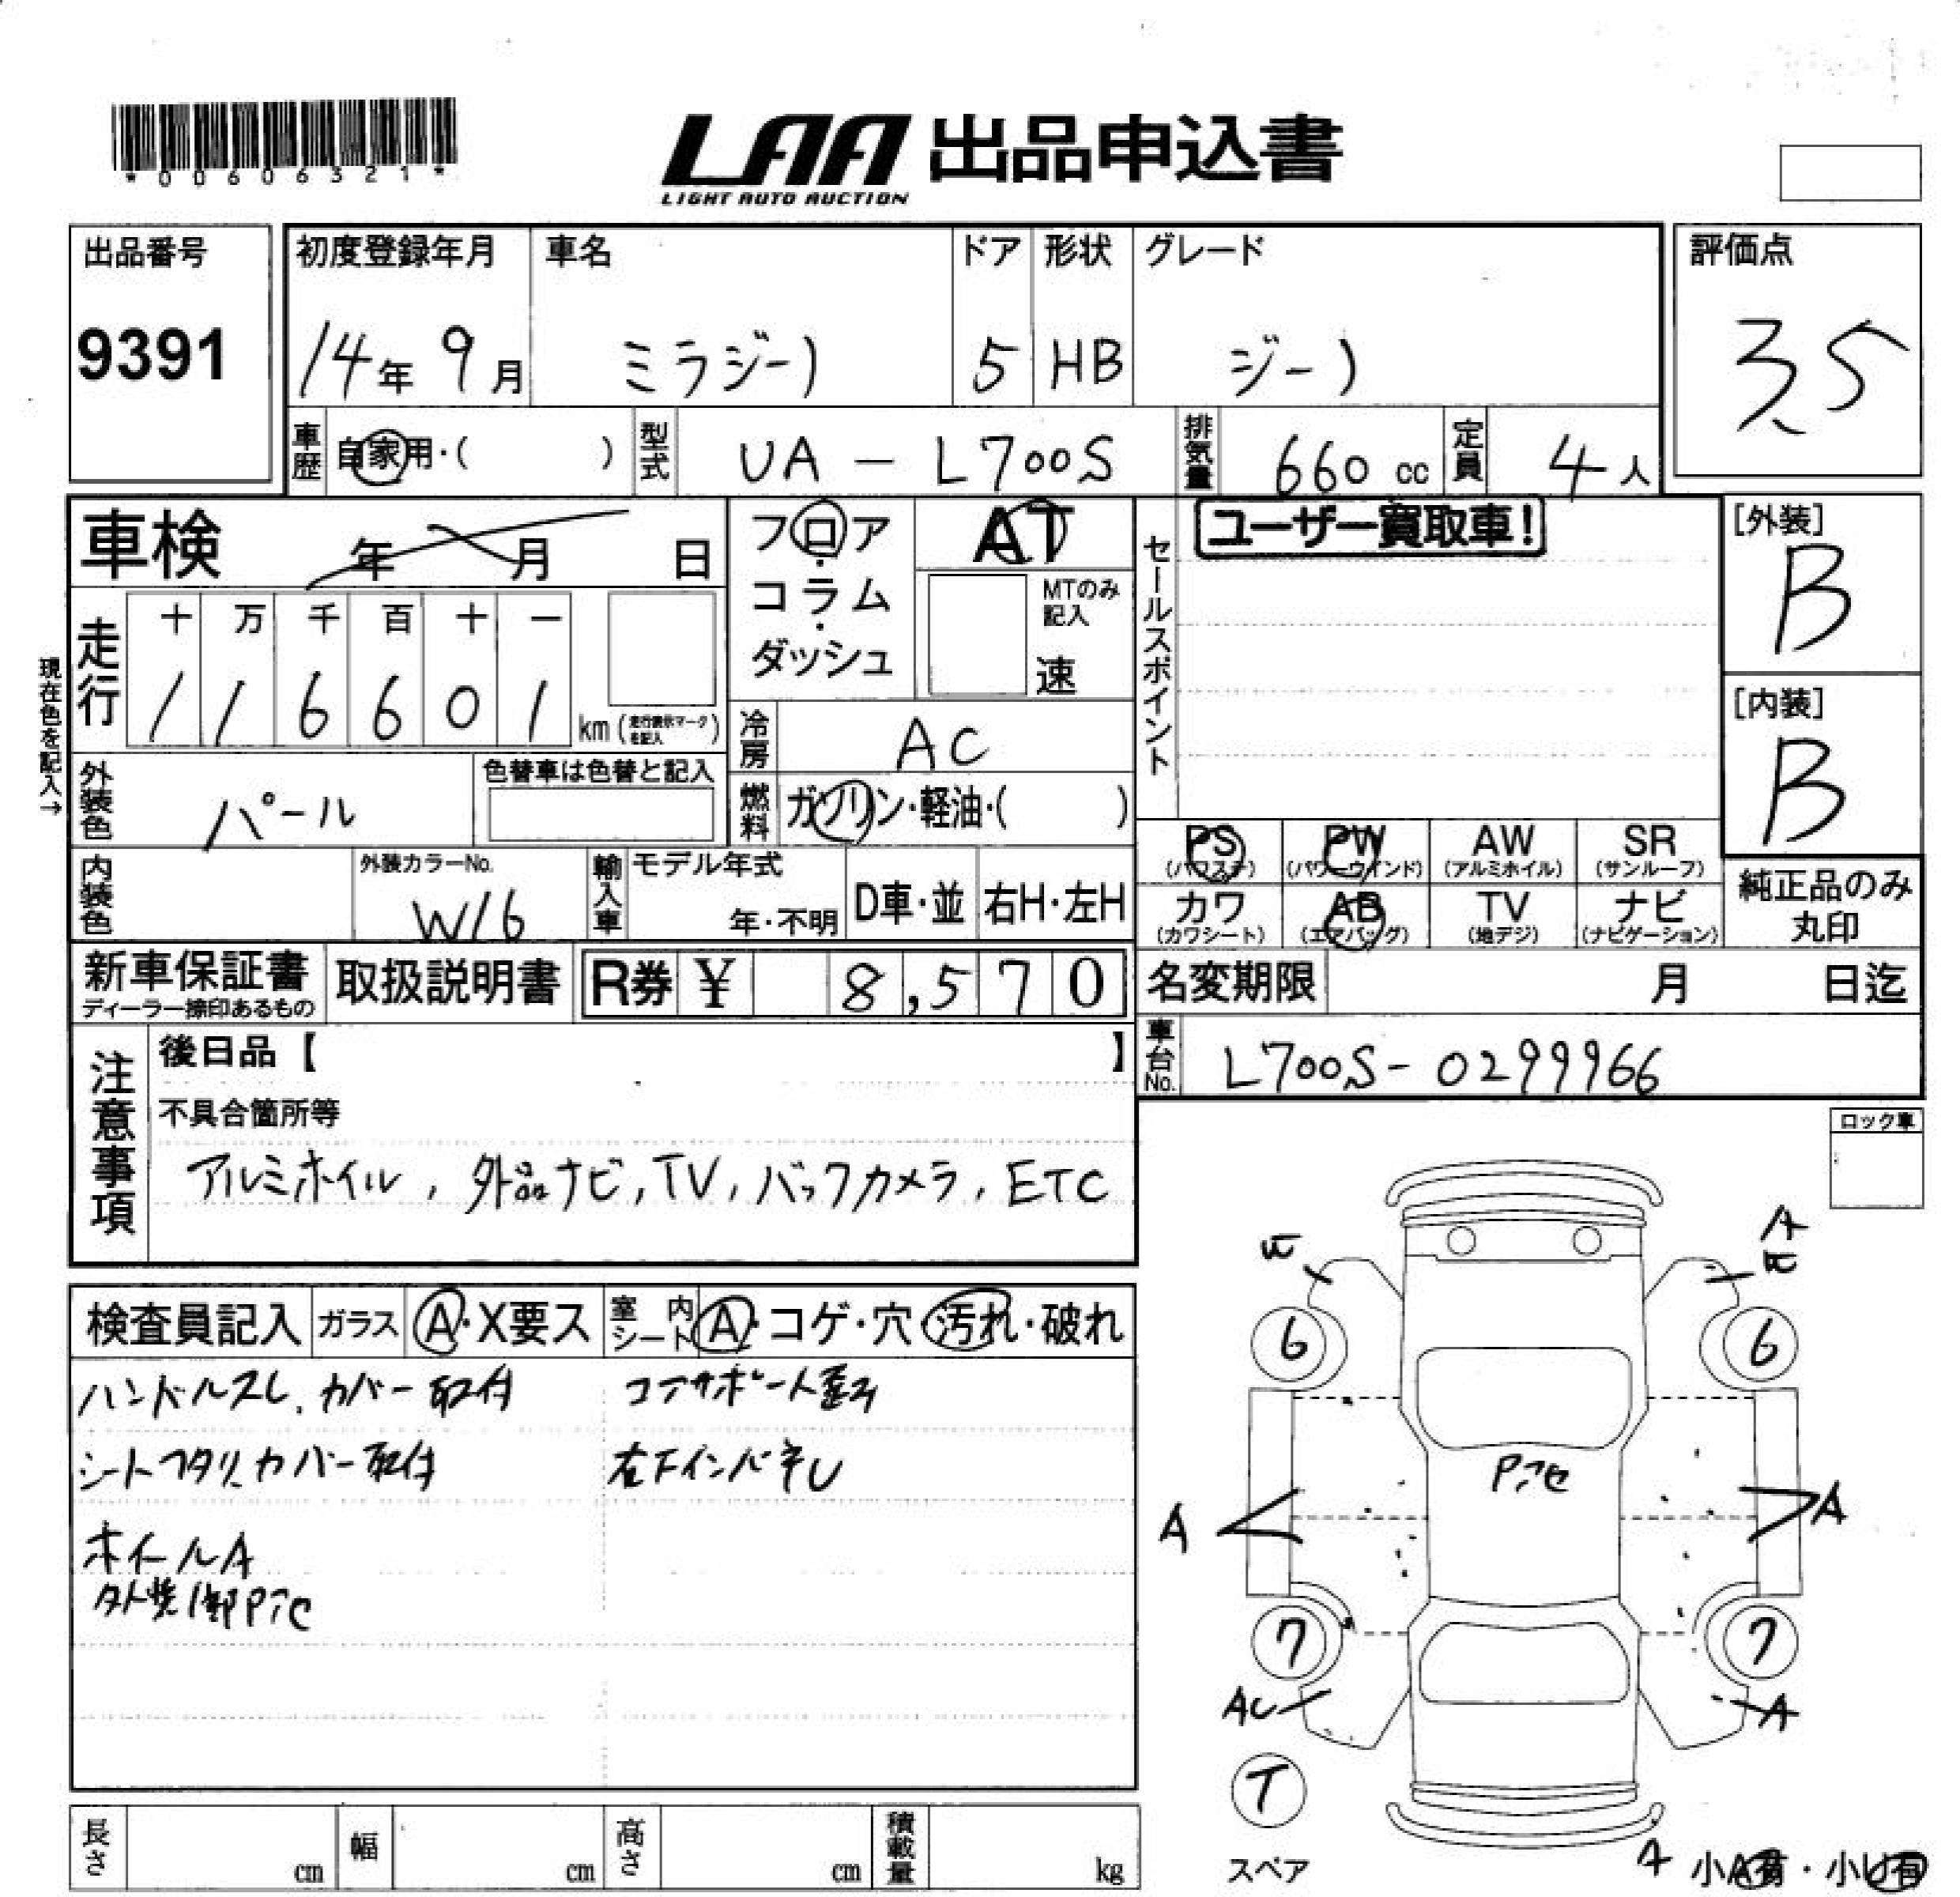 *00606321*
LAA 出品申込書
LIGHT AUTO AUCTION
出品番号
9391
初度登録年月
14年 9月
車名
ミラジーノ
ドア
5
形状
HB
グレード
ジーノ
評価点
3.5
車歴
自家用・( )
型式
UA - L700S
排気量
660 cc
定員
4人
車検 年 月 日
走行
十 万 千 百 十 一
1 1 6 6 0 1 km (走行表示マークを記入)
現在色を記入→
外装色
パール
色替車は色替と記入
内装色
外装カラーNo.
W16
フロア・コラム・ダッシュ
AT
MTのみ記入
速
冷房
AC
燃料
ガソリン・軽油・( )
輸入車
モデル年式
年・不明
D車・並
右H・左H
セールスポイント
ユーザー買取車!
[外装]
B
[内装]
B
PS (パワステ)
PW (パワーウインド)
AW (アルミホイル)
SR (サンルーフ)
カワ (カワシート)
AB (エアバッグ)
TV (地デジ)
ナビ (ナビゲーション)
純正品のみ丸印
新車保証書
ディーラー捺印あるもの
取扱説明書
R券 ¥ 8,570
名変期限 月 日迄
車台No.
L700S-0299966
注意事項
後日品【 】
不具合箇所等
アルミホイル, 外品ナビ, TV, バックカメラ, ETC
ロック車
検査員記入
ガラス
A・X要ス
室内シート
A・コゲ・穴・汚れ・破れ
ハンドルスレ. カバー取付
コアサポート歪み
シートヘタリ. カバー取付
右下インパネU
ホイールA
A
6
6
A
A
7
7
AU
A
T
スペア
A 小A有・小U有
長さ cm
幅 cm
高さ cm
積載量 kg